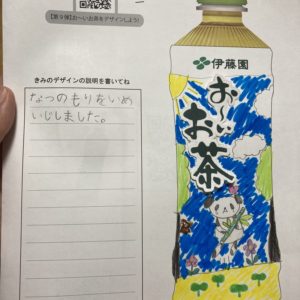 【第9弾】お〜いお茶をデザインしよう!
きみのデザインの説明を書いてね
なつのもりをいめ
いじしました。
伊藤園
お〜い
お茶